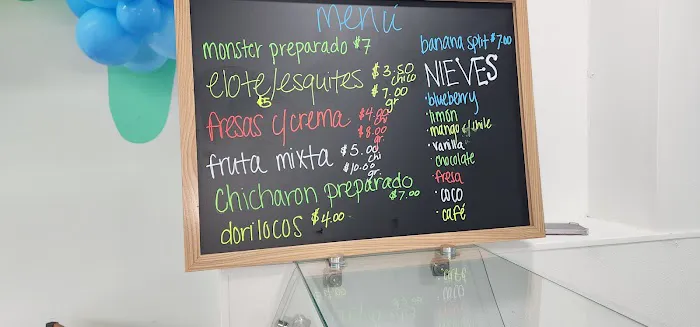 menú
monster preparado $7
elote/esquites $3.50 chico
5 $7.00 gr
fresas c/crema $4.00 chi
$8.00 gr.
fruta mixta $5.00 chi
$10.00 gr.
chicharon preparado $7.00
dorilocos $4.00
banana split $7.00
NIEVES
· blueberry
· limón
· mango c/chile
· vainilla
· chocolate
· fresa
· coco
· café